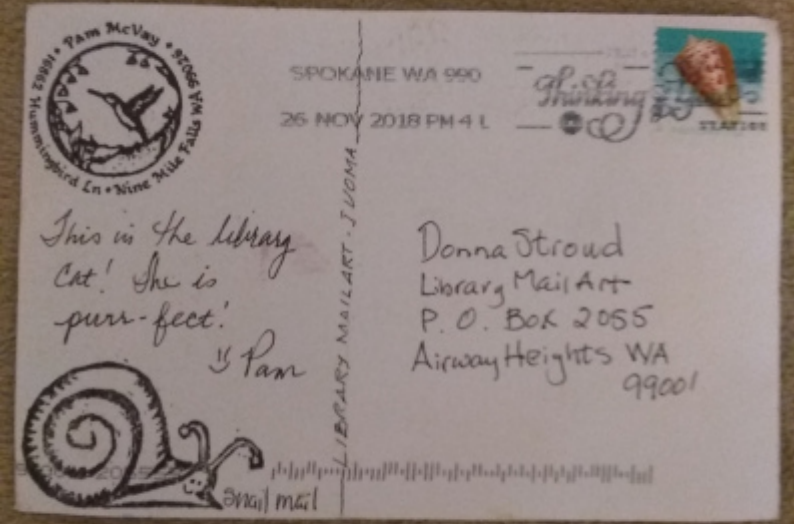 • Pam McVay • 16862 Hummingbird Ln • Nine Mile Falls WA 99026
SPOKANE WA 990
26 NOV 2018 PM 4 L
Thinking
This is the library
cat! She is
purr-fect!
Pam
snail mail
LIBRARY MAILART - IUOMA
Donna Stroud
Library Mail Art
P. O. Box 2055
Airway Heights WA
99001